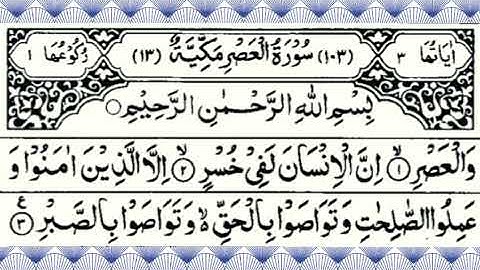 اٰیَاتُهَا ۳ (۱۰۳) سُوْرَةُ الْعَصْرِ مَكِّیَّةٌ (۱۳) رُكُوْعُهَا ۱
بِسْمِ اللّٰهِ الرَّحْمٰنِ الرَّحِیْمِ
وَ الْعَصْرِ ۙ۱ اِنَّ الْاِنْسَانَ لَفِیْ خُسْرٍ ۙ۲ اِلَّا الَّذِیْنَ اٰمَنُوْا وَ
عَمِلُوا الصّٰلِحٰتِ وَ تَوَاصَوْا بِالْحَقِّ ۙ۬ وَ تَوَاصَوْا بِالصَّبْرِ ۠۳ ع